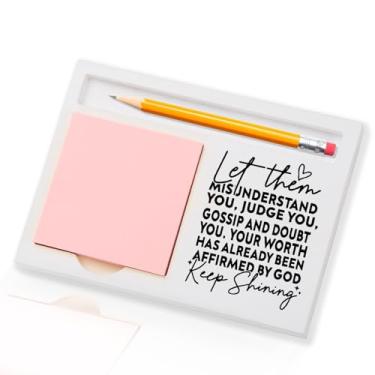 Let them
MISUNDERSTAND
YOU, JUDGE YOU,
GOSSIP AND DOUBT
YOU. YOUR WORTH
HAS ALREADY BEEN
AFFIRMED BY GOD
Keep Shining